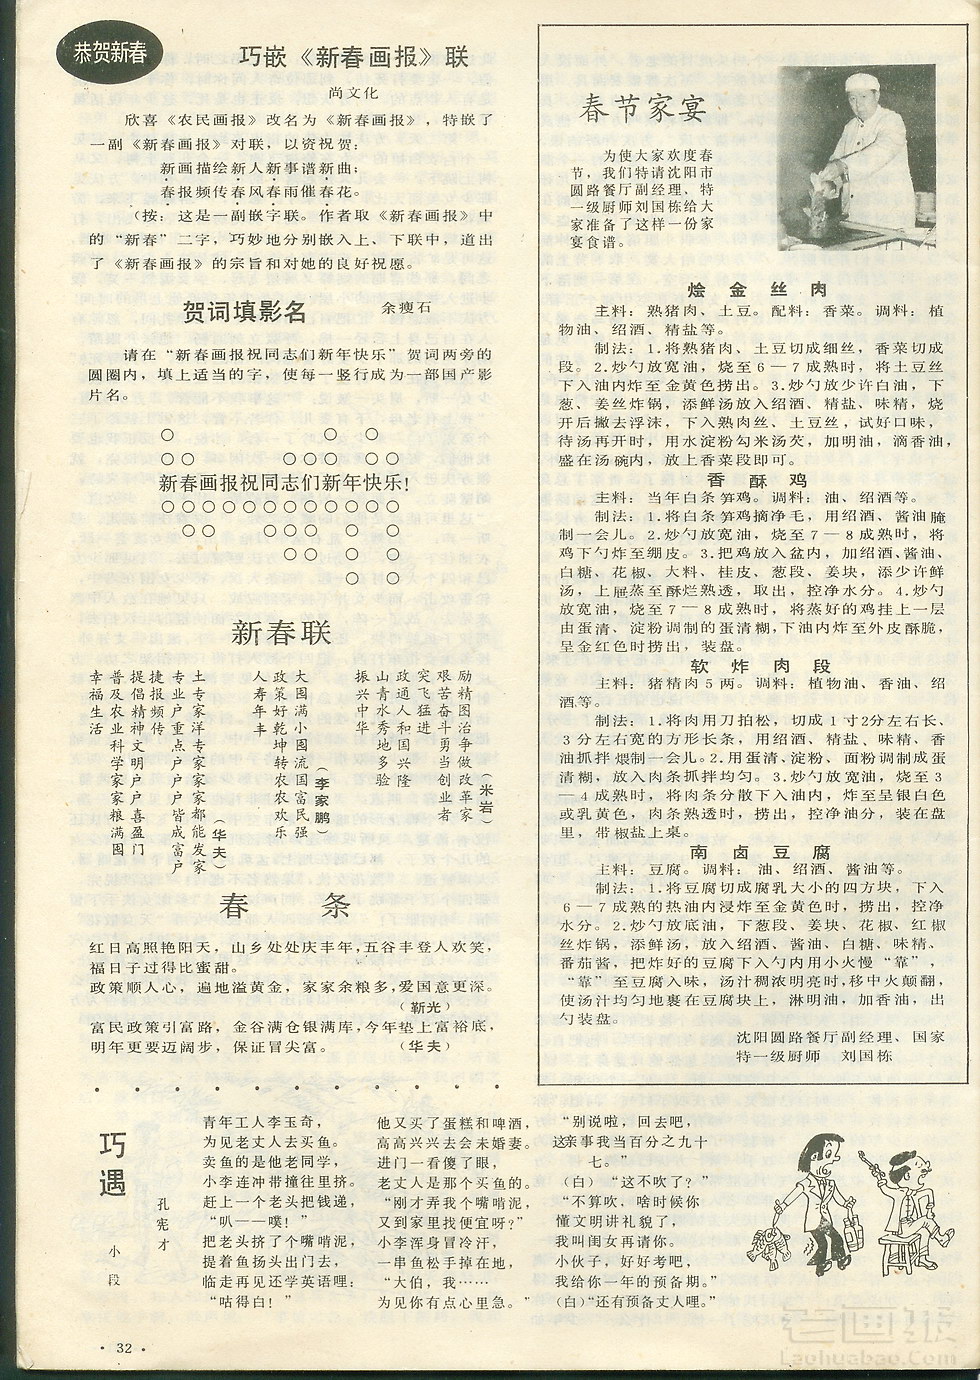 恭贺新春
巧嵌《新春画报》联
尚文化
欣喜《农民画报》改名为《新春画报》，特嵌了
一副《新春画报》对联，以资祝贺：
新画描绘新人新事谱新曲；
春报频传春风春雨催春花。
（按：这是一副嵌字联。作者取《新春画报》中
的“新春”二字，巧妙地分别嵌入上、下联中，道出
了《新春画报》的宗旨和对她的良好祝愿。
贺词填影名
余瘦石
请在“新春画报祝同志们新年快乐”贺词两旁的
圆圈内，填上适当的字，使每一竖行成为一部国产影
片名。
新春画报祝同志们新年快乐！
新春联
励精图治争做改革家
艰苦奋斗勇当创业者
突飞猛进
（米岩）
政通人和国兴隆
山青水秀地多
振兴中华
大囤满小囤流国富民强
政策好乾坤转农农欢乐
人寿年丰
（李家鹏）
土专家洋专家家家都能发家
专业户重点户户户皆成富户
捷报频传
（华夫）
提倡精神文明户户喜盈门
普及农业科学家家粮满囤
幸福生活
春 条
红日高照艳阳天，山乡处处庆丰年，五谷丰登人欢笑，
福日子过得比蜜甜。
政策顺人心，遍地溢黄金，家家余粮多，爱国意更深。
（靳光）
富民政策引富路，金谷满仓银满库，今年垫上富裕底，
明年更要迈阔步，保证冒尖富。 （华夫）
春节家宴
为使大家欢度春
节，我们特请沈阳市
圆路餐厅副经理，特
一级厨师刘国栋给大
家准备了这样一份家
宴食谱。
烩金丝肉
主料：熟猪肉、土豆。配料：香菜。调料：植
物油、绍酒、精盐等。
制法：1.将熟猪肉、土豆切成细丝，香菜切成
段。2.炒勺放宽油，烧至6—7成熟时，将土豆丝
下入油内炸至金黄色捞出。3.炒勺放少许白油，下
葱、姜丝炸锅，添鲜汤放入绍酒、精盐、味精，烧
开后撇去浮沫，下入熟肉丝、土豆丝，试好口味，
待汤再开时，用水淀粉勾米汤芡，加明油，滴香油，
盛在汤碗内，放上香菜段即可。
香酥鸡
主料：当年白条笋鸡。调料：油、绍酒等。
制法：1.将白条笋鸡摘净毛，用绍酒、酱油腌
制一会儿。2.炒勺放宽油，烧至7—8成熟时，将
鸡下勺炸至绷皮。3.把鸡放入盆内，加绍酒、酱油、
白糖、花椒、大料、桂皮、葱段、姜块，添少许鲜
汤，上屉蒸至酥烂熟透，取出，控净水分。4.炒勺
放宽油，烧至7—8成熟时，将蒸好的鸡挂上一层
由蛋清、淀粉调制的蛋清糊，下油内炸至外皮酥脆，
呈金红色时捞出，装盘。
软炸肉段
主料：猪精肉5两。调料：植物油、香油、绍
酒等。
制法：1.将肉用刀拍松，切成1寸2分左右长、
3分左右宽的方形长条，用绍酒、精盐、味精、香
油抓拌煨制一会儿。2.用蛋清、淀粉、面粉调制成蛋
清糊，放入肉条抓拌均匀。3.炒勺放宽油，烧至3
—4成熟时，将肉条分散下入油内，炸至呈银白色
或乳黄色，肉条熟透时，捞出，控净油分，装在盘
里，带椒盐上桌。
南卤豆腐
主料：豆腐。调料：油、绍酒、酱油等。
制法：1.将豆腐切成腐乳大小的四方块，下入
6—7成熟的热油内浸炸至金黄色时，捞出，控净
水分。2.炒勺放底油，下葱段、姜块、花椒、红椒
丝炸锅，添鲜汤，放入绍酒、酱油、白糖、味精、
番茄酱，把炸好的豆腐下入勺内用小火慢“靠”，
“靠”至豆腐入味，汤汁稠浓明亮时，移中火颠翻，
使汤汁均匀地裹在豆腐块上，淋明油，加香油，出
勺装盘。
沈阳圆路餐厅副经理、国家
特一级厨师 刘国栋
巧遇
孔宪才
小段
青年工人李玉奇，
为见老丈人去买鱼。
卖鱼的是他老同学，
小李连冲带撞往里挤。
赶上一个老头把钱递，
“叭——噗！”
把老头挤了个嘴啃泥，
提着鱼扬头出门去，
临走再见还学英语哩：
“咕得白！”
他又买了蛋糕和啤酒，
高高兴兴去会未婚妻。
进门一看傻了眼，
老丈人是那个买鱼的。
“刚才弄我个嘴啃泥，
又到家里找便宜呀？”
小李浑身冒冷汗，
一串鱼松手掉在地，
“大伯，我……
为见你有点心里急。”
“别说啦，回去吧，
这亲事我当百分之九十
七。”
（白）“这不吹了？”
“不算吹，啥时候你
懂文明讲礼貌了，
我叫闺女再请你。
小伙子，好好考吧，
我给你一年的预备期。”
（白）“还有预备丈人哩。”
·32·
老画报
Laohuabao.Com